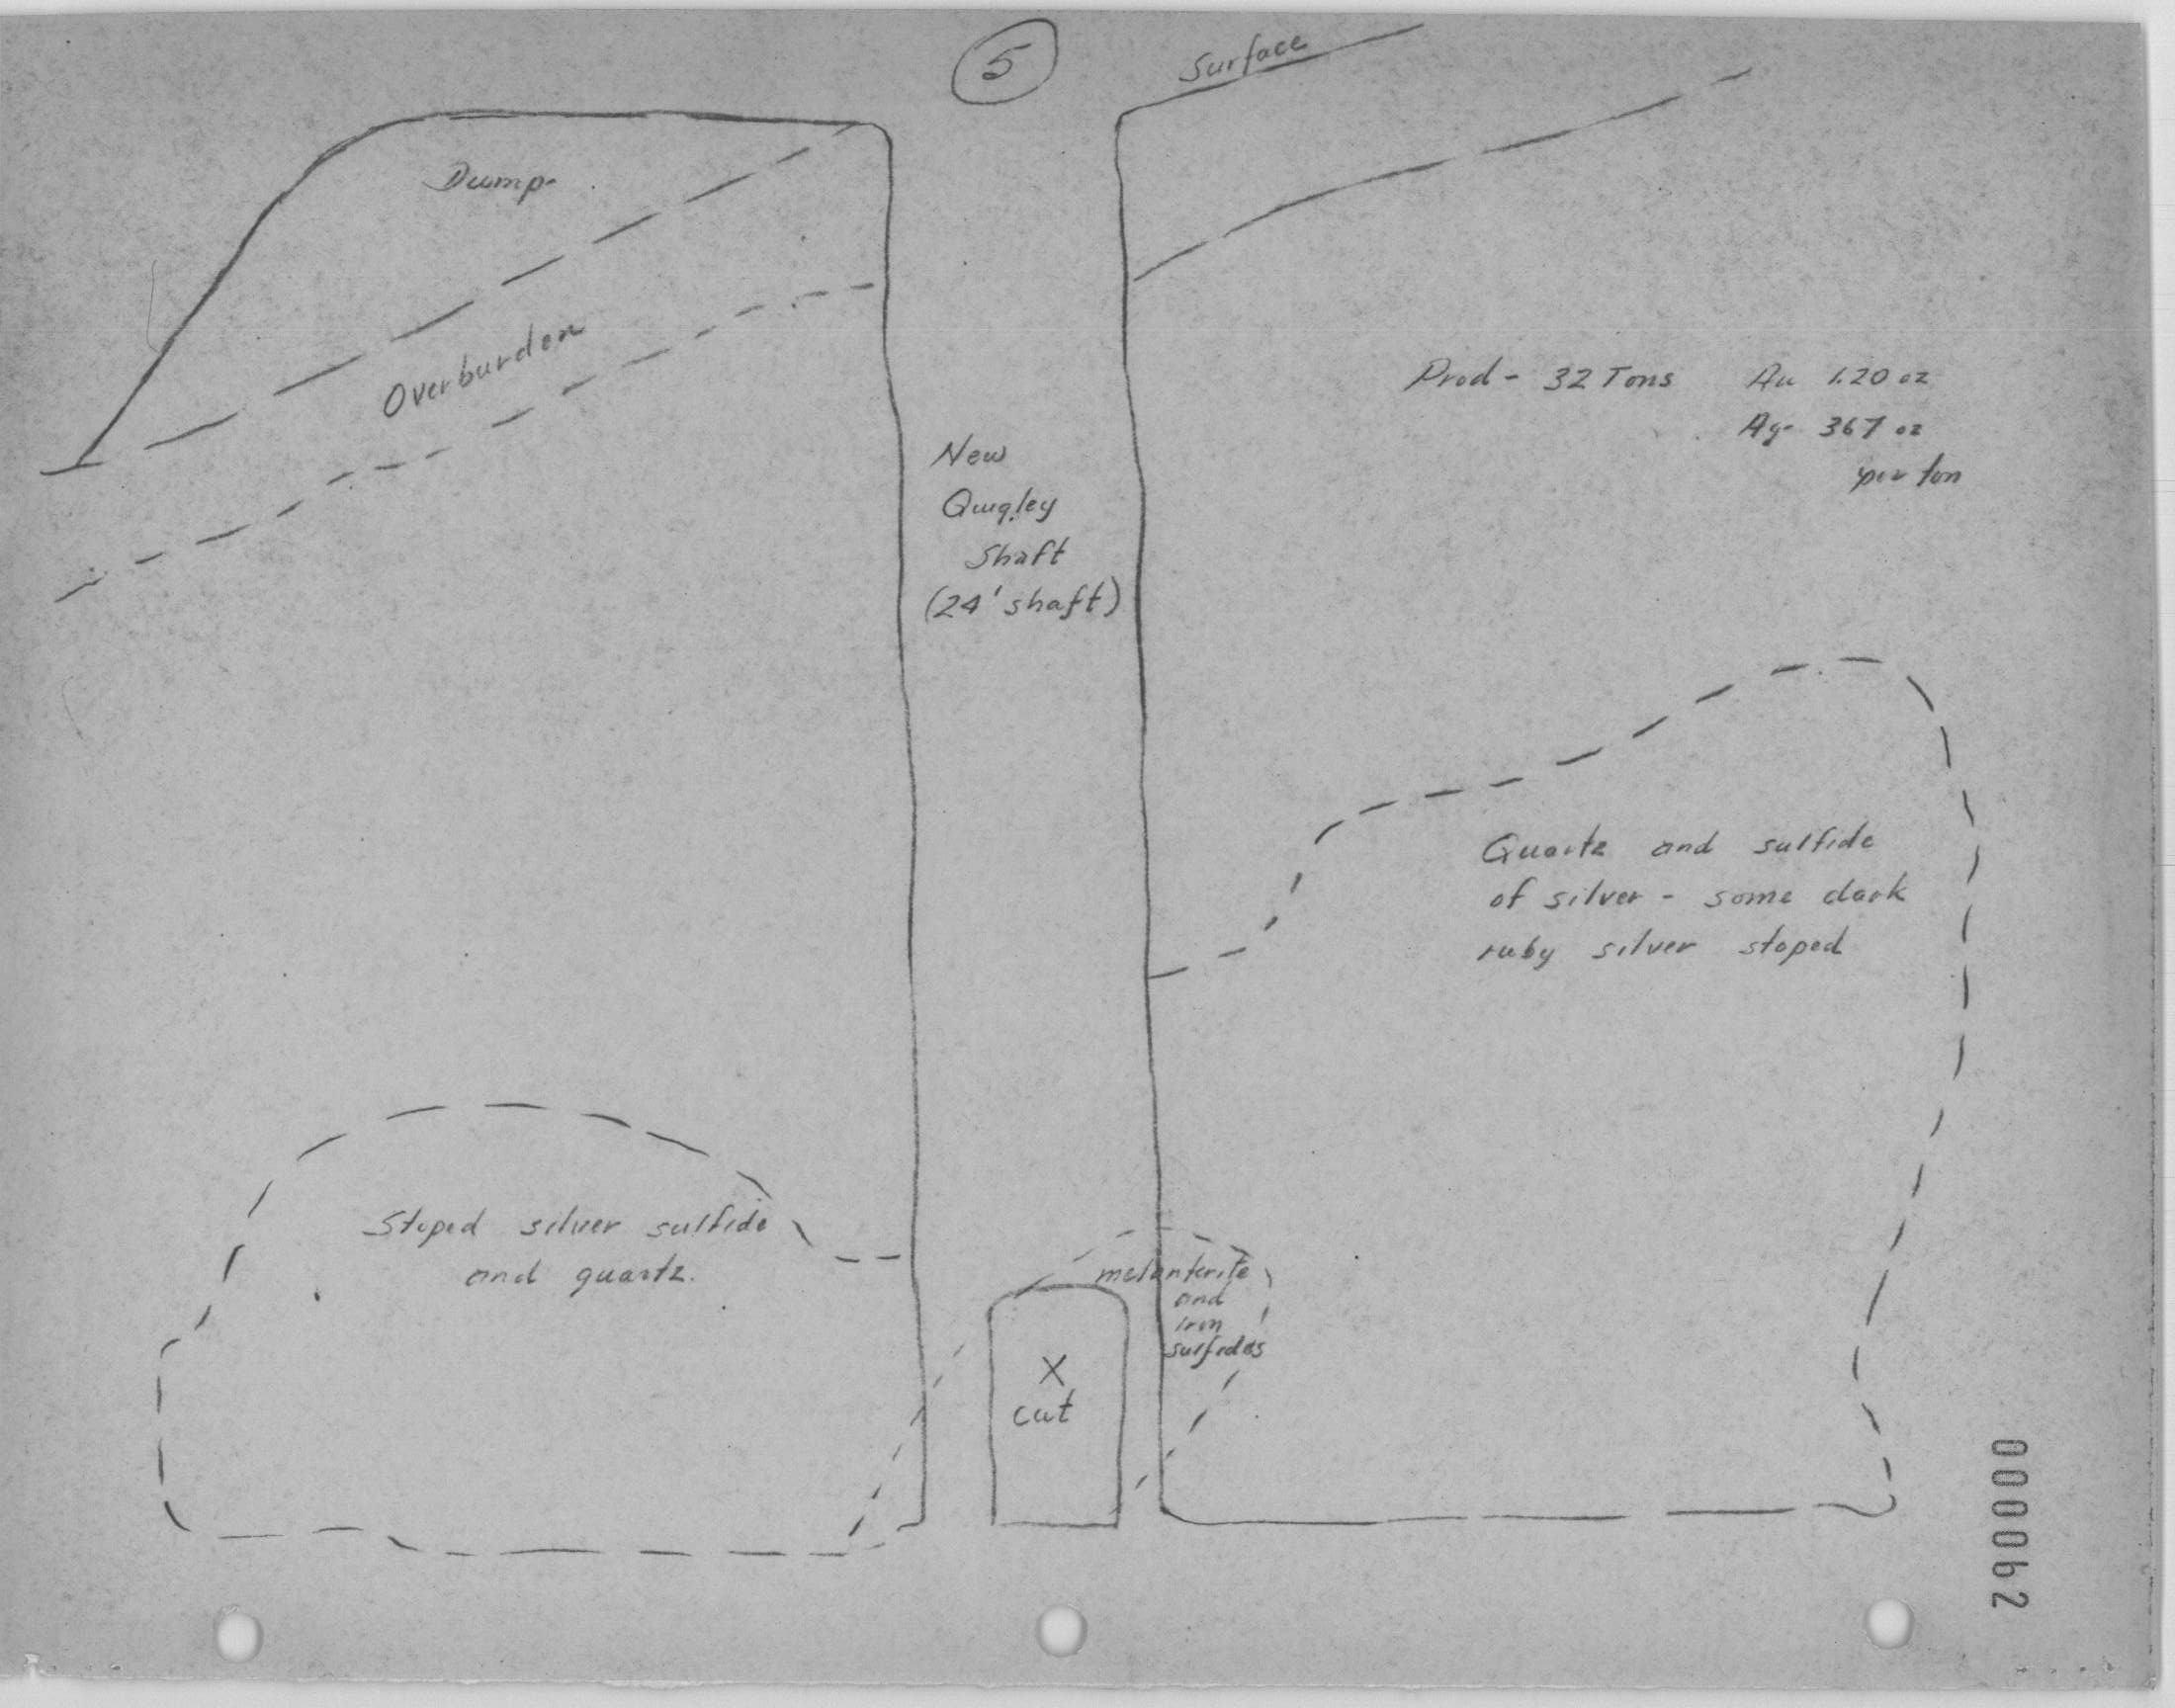 5
Surface
Dump
Overburden
Prod - 32 Tons Au 1.20 oz
Ag - 367 oz
per ton
New
Quigley
Shaft
(24' shaft)
Quartz and sulfide
of silver - some dark
ruby silver stoped
Stoped silver sulfide
and quartz.
melanterite
and
iron
sulfides
X
cut
000062